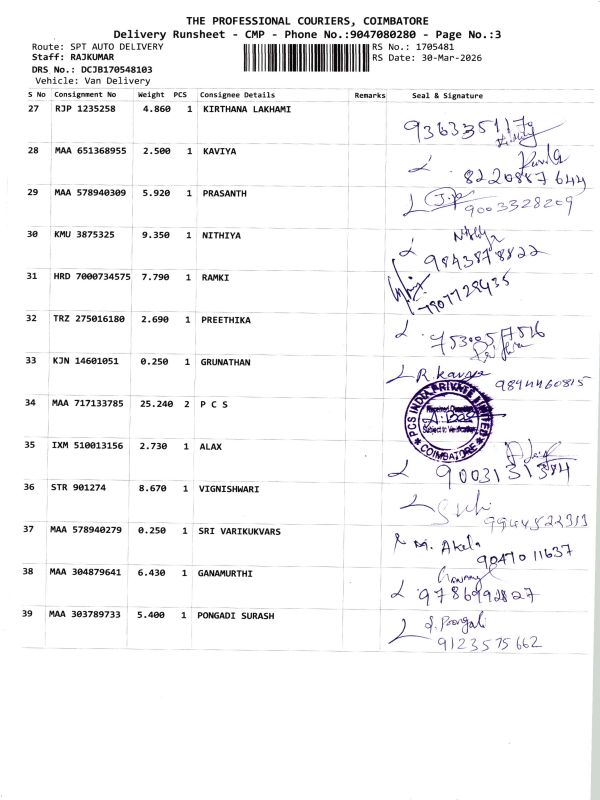 THE PROFESSIONAL COURIERS, COIMBATORE
Delivery Runsheet - CMP - Phone No.:9047080280 - Page No.:3
Route: SPT AUTO DELIVERY RS No.: 1705481
Staff: RAJKUMAR RS Date: 30-Mar-2026
DRS No.: DCJB170548103
Vehicle: Van Delivery
S No Consignment No Weight PCS Consignee Details Remarks Seal & Signature
27 RJP 1235258 4.860 1 KIRTHANA LAKHAMI
28 MAA 651368955 2.500 1 KAVIYA
8220887644
29 MAA 578940309 5.920 1 PRASANTH
9003328209
30 KMU 3875325 9.350 1 NITHIYA
9843878822
31 HRD 7000734575 7.790 1 RAMKI
7907728435
32 TRZ 275016180 2.690 1 PREETHIKA
33 KJN 14601051 0.250 1 GRUNATHAN
R. kavya 9894460815
34 MAA 717133785 25.240 2 P C S
PCS INDIA PRIVATE LIMITED
Subject to Verification
COIMBATORE
35 IXM 510013156 2.730 1 ALAX
9003131384
36 STR 901274 8.670 1 VIGNISHWARI
9944522313
37 MAA 578940279 0.250 1 SRI VARIKUKVARS
M. Akela
9047011637
38 MAA 304879641 6.430 1 GANAMURTHI
9786992827
39 MAA 303789733 5.400 1 PONGADI SURASH
9123575662